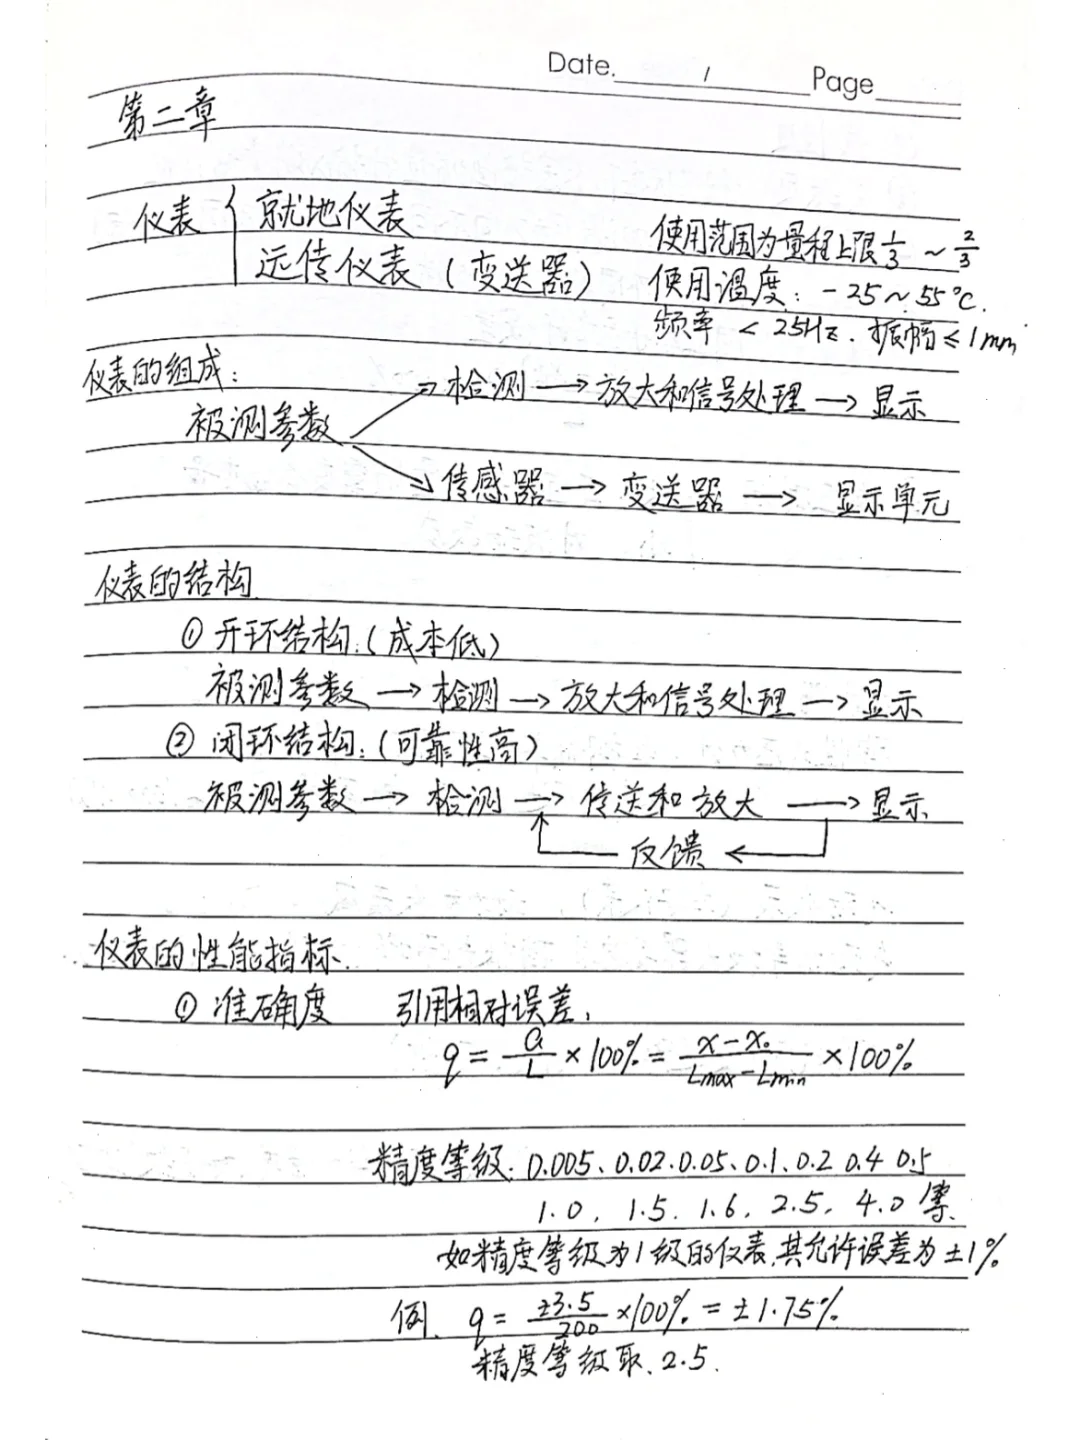 Date. / Page
第二章
仪表 { 就地仪表
远传仪表（变送器）
使用范围为量程上限 1/3 ～ 2/3
使用温度：-25～55℃.
频率 < 25Hz . 振幅 ≤ 1mm
仪表的组成：
被测参数 → 检测 → 放大和信号处理 → 显示
→ 传感器 → 变送器 → 显示单元
仪表的结构
① 开环结构：（成本低）
被测参数 → 检测 → 放大和信号处理 → 显示
② 闭环结构：（可靠性高）
被测参数 → 检测 → 传送和放大 → 显示
↑ 反馈 ←
仪表的性能指标.
① 准确度 引用相对误差，
q = a/L ×100% = (x-x₀)/(Lmax-Lmin) ×100%
精度等级：0.005、0.02.0.05、0.1、0.2 0.4 0.5
1.0 , 1.5. 1.6 , 2.5, 4.0 等.
如精度等级为1级的仪表,其允许误差为±1%
例. q = ±3.5/200 ×100% = ±1.75%.
精度等级取.2.5.